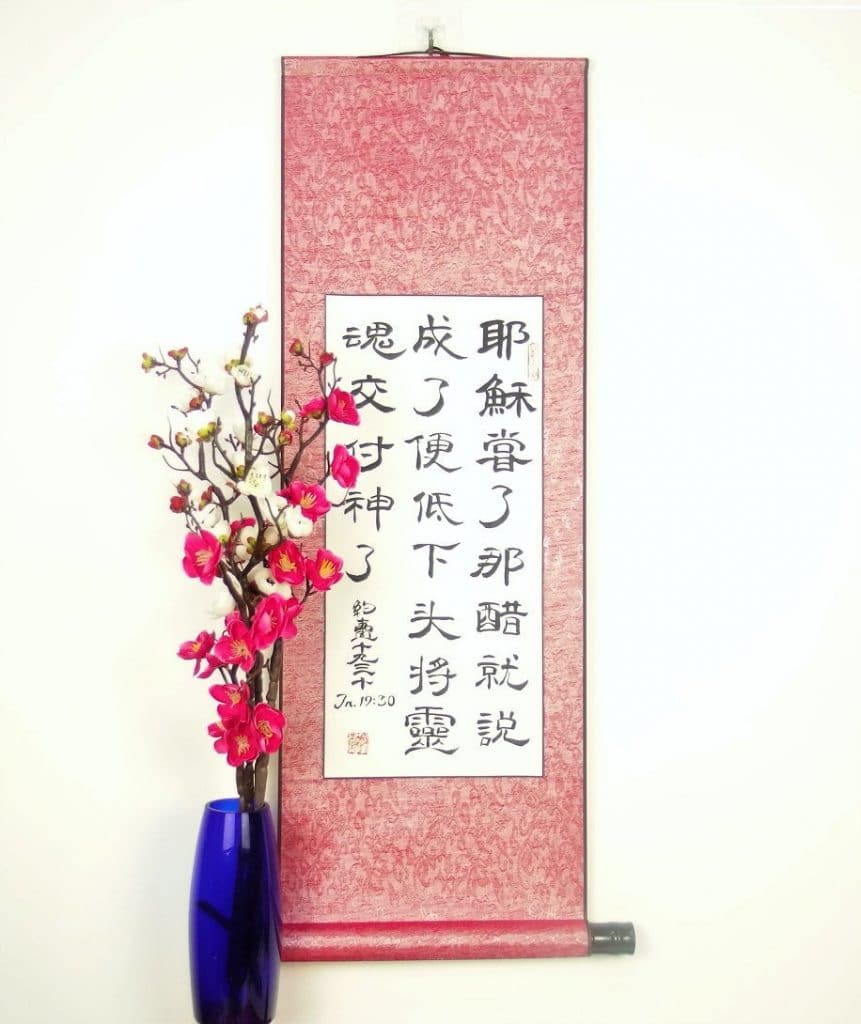 耶穌嘗了那醋就説
成了便低下头将靈
魂交付神了
約十九三十
Jn. 19:30